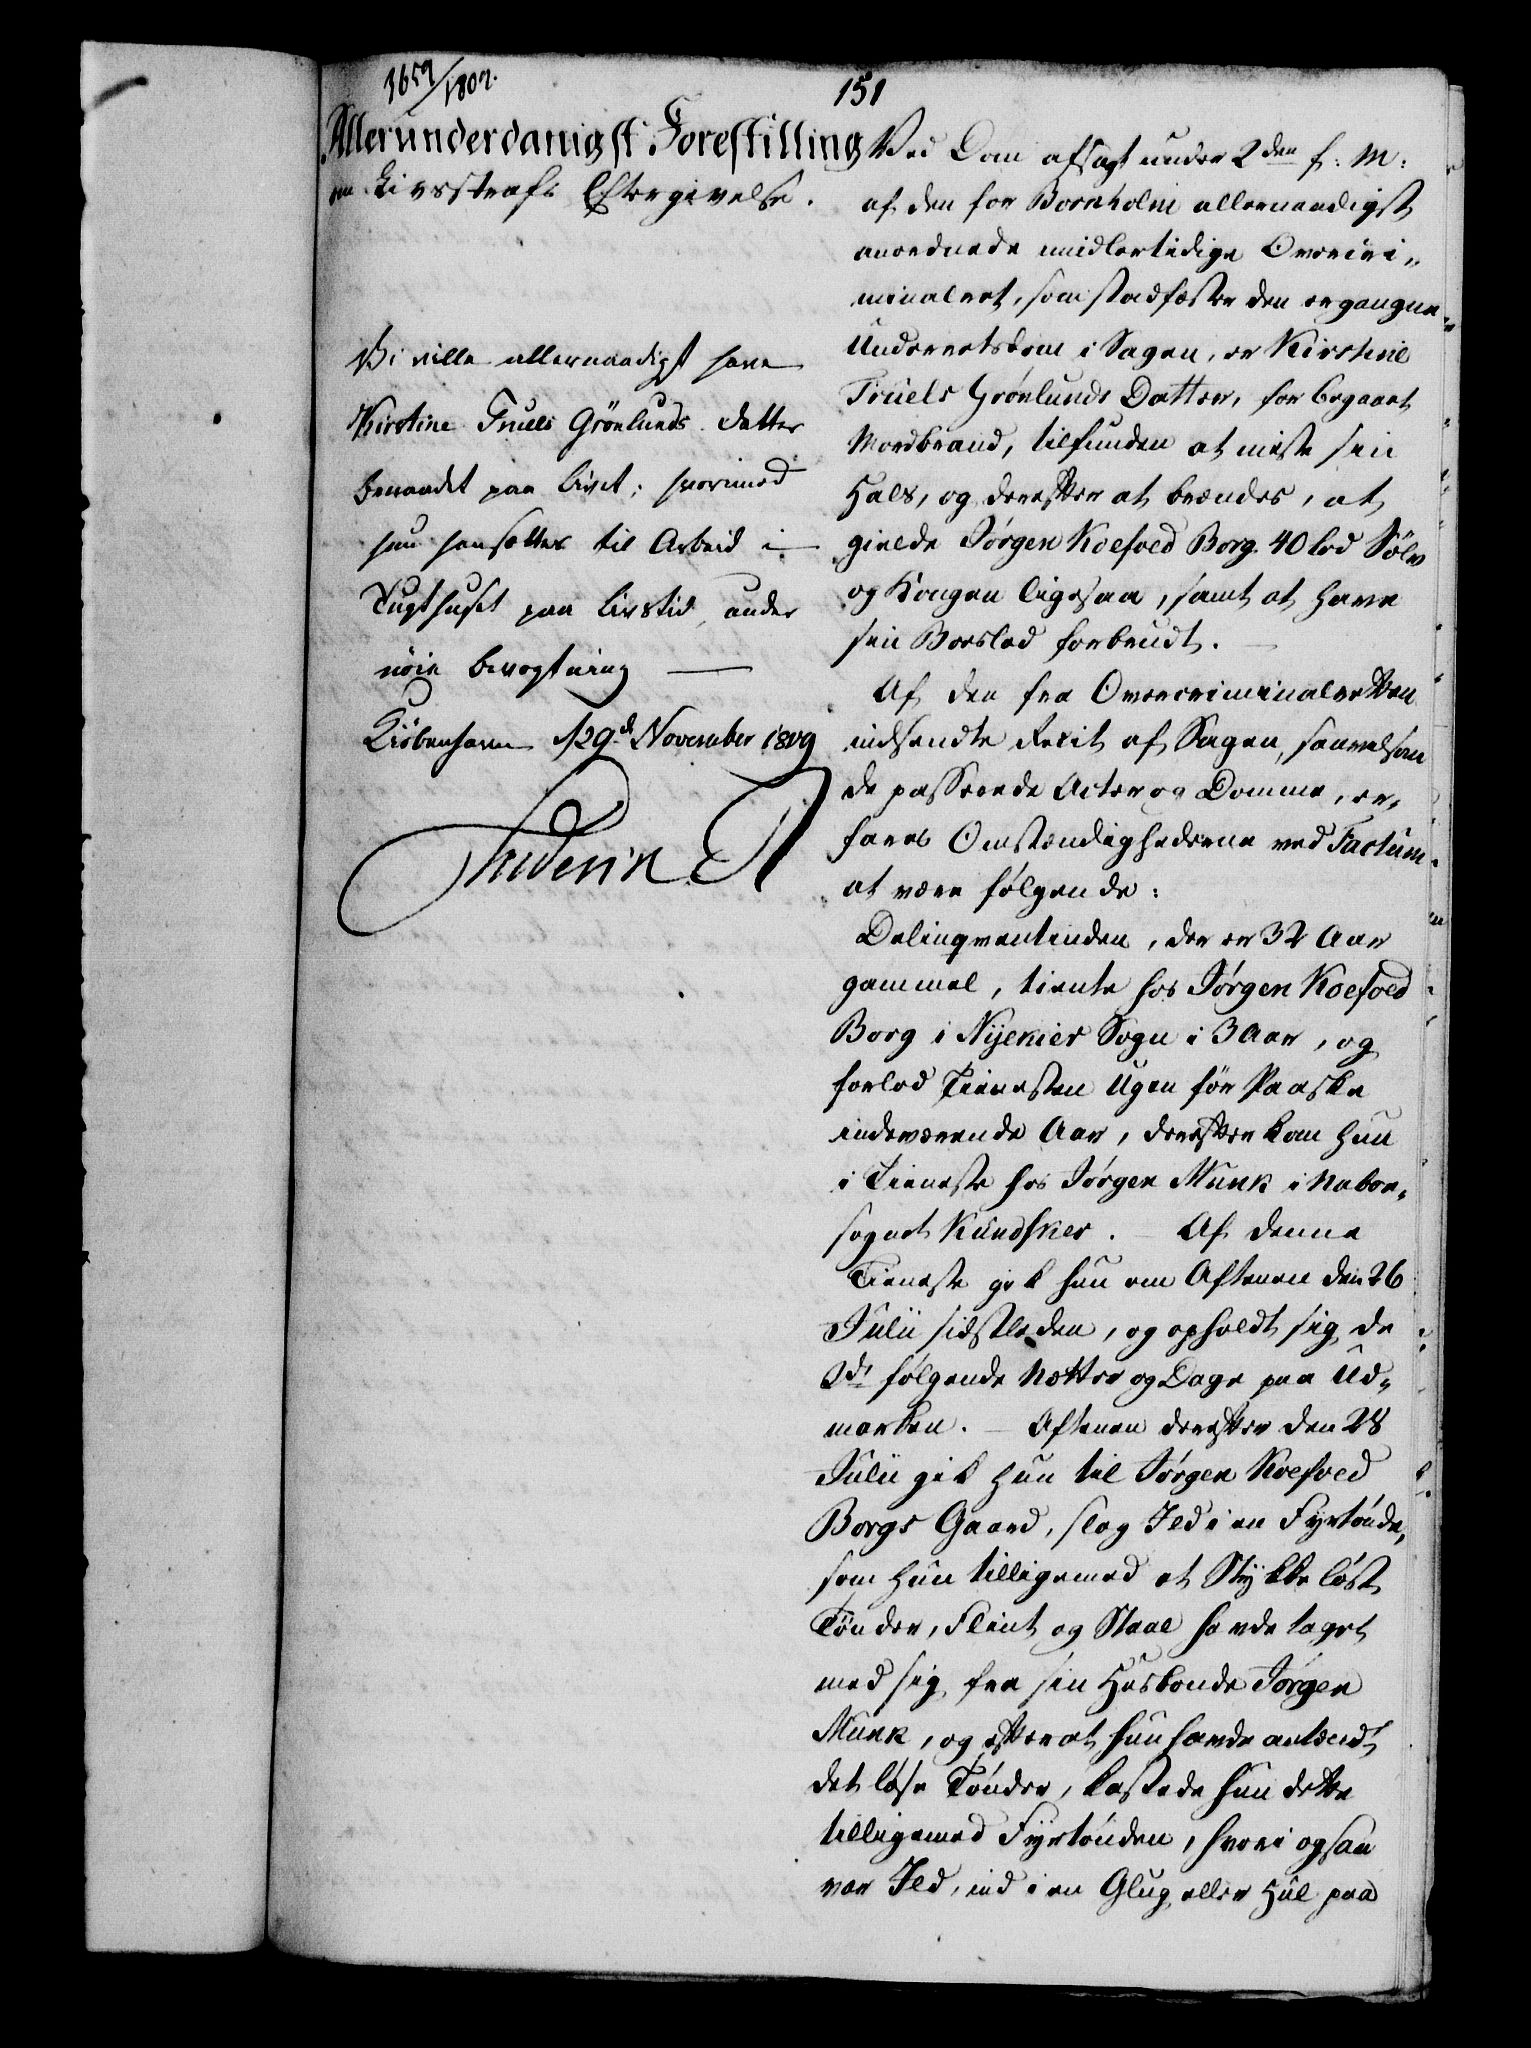 3659/1809.
151
Allerunderdanigst Forestilling
om Livsstrafs Eftergivelse.
Vi ville allernaadigst have
Kirstine Truels Grönlunds datter
benaadet paa Livet; hvorimod
hun hensættes til Arbeid i
Tugthuset paa Livstid, under
nöie bevogtning
Kiöbenhavn 29d November 1809
Frederik R
Ved Dom afsagt under 2den f: M:
af den for Bornholm allernaadigst
anordnede midlertidige Overcri„
minalret, som stadfæster den ergangne
Underretsdom i Sagen, er Kirstine
Truels Grönlunds Datter, for begaaet
Mordbrand, tilfunden at miste sin
Hals, og derefter at brændes, at
gielde Jörgen Koefoed Borg 40 lod Sölv
og Kongen ligesaa, samt at have
sin Boeslod forbrudt.
Af den fra Overcriminalretten
indsendte Recit af Sagen, saavelsom
de passerede Acter og Domme, er„
fares Omstændighederne ved Factum
at være følgende:
Delinqventinden, der er 32 Aar
gammel, tiente hos Jörgen Koefoed
Borg i Nyekier Sogn i 3 Aar, og
forlod Tienesten Ugen för Paaske
indeværende Aar, derefter kom hun
i Tieneste hos Jörgen Munk i Naboe„
sognet Knudsker. — Af denne
Tieneste gik hun om Aftenen den 26
Julii sidstleden, og opholdt sig de
2de følgende Nætter og Dage paa Ud„
marken. — Aftenen derefter den 28
Julii gik hun til Jörgen Koefoed
Borgs Gaard, slog Ild i en Fyrtönde,
som hun tilligemed et Stykke löst
Tönder, Flint og Staal havde taget
med sig fra sin Husbonde Jörgen
Munk, og efterat hun havde antændt
det löse Tönder, kastede hun dette
tilligemed Fyrtönden, hvori ogsaa
var Ild, ind i en Glug eller Hul paa